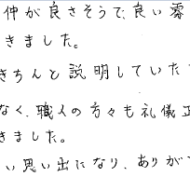 仲が良さそうで、良い雰
きました。
きちんと説明していた
なく、職人の方々も礼儀正
きました。
い思い出になり、ありが